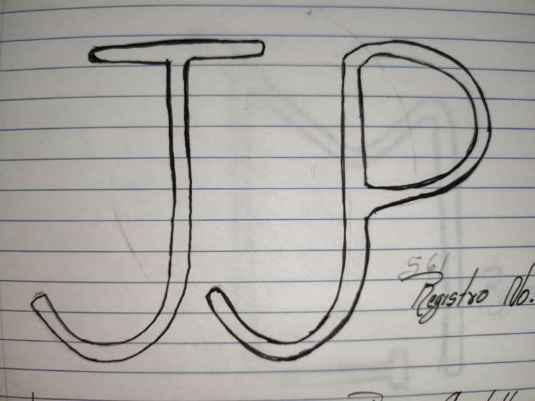 JP
561
Registro No.